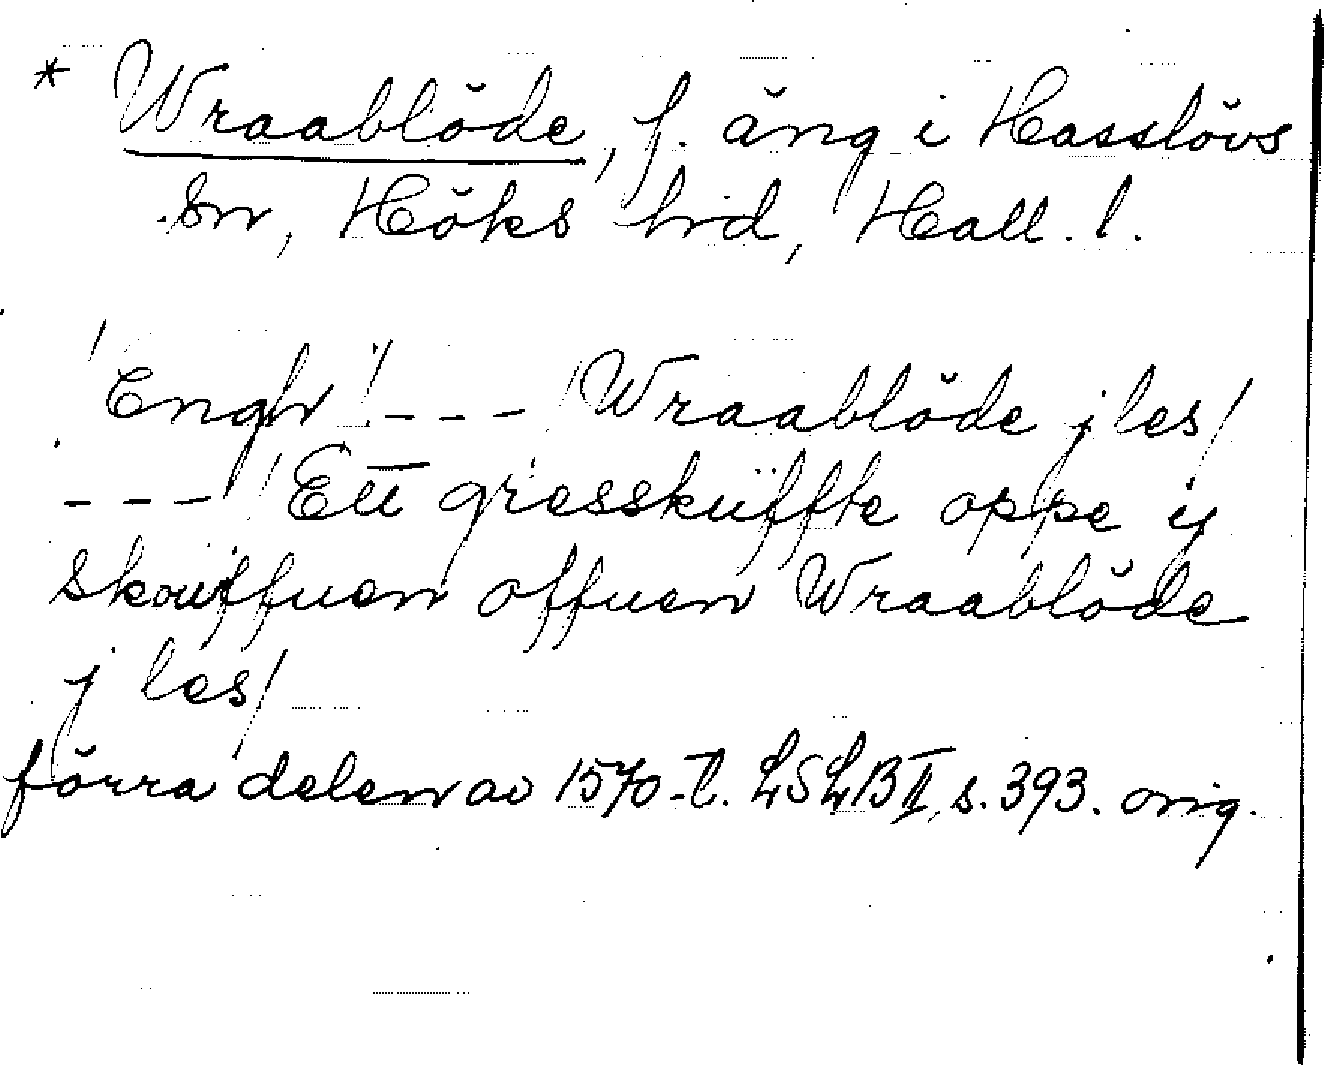 * Wraablöde, f. äng i Hasslövs
sn, Höks hd, Hall. l.
Engh / - - - / Wraablöde j les /
- - - / Ett gresskuffte oppe ij
skouffuen offuen Wraablöde
j les /
förra delen av 1570-t. LSLB II, s. 393. orig.